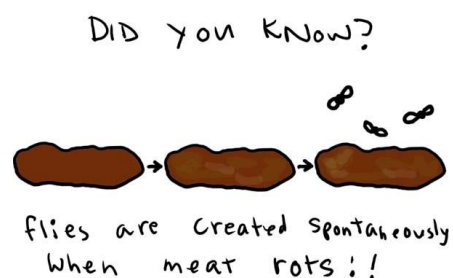 DID YOU KNOW?
flies are created spontaneously
when meat rots!!